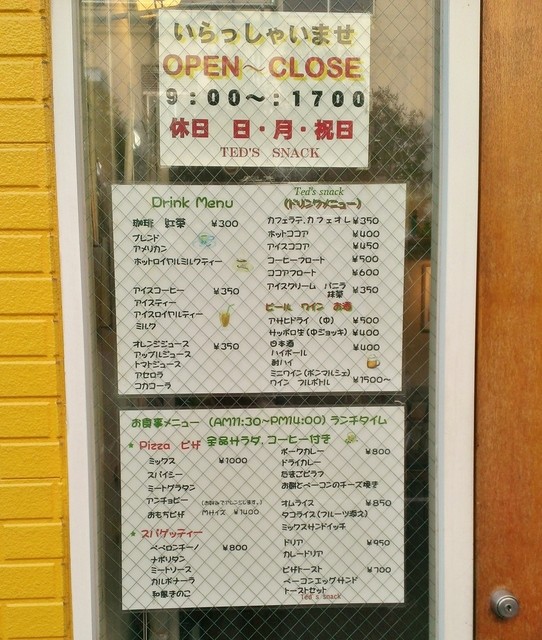 いらっしゃいませ
OPEN～CLOSE
9：00～：1700
休日 日・月・祝日
TED'S SNACK
Drink Menu
Ted's snack
(ドリンクメニュー)
珈琲 紅茶 ¥300
ブレンド
アメリカン
ホットロイヤルミルクティー
アイスコーヒー ¥350
アイスティー
アイスロイヤルティー
ミルク
オレンジジュース ¥350
アップルジュース
トマトジュース
アセロラ
コカコーラ
カフェラテ,カフェオレ ¥350
ホットココア ¥400
アイスココア ¥450
コーヒーフロート ¥500
ココアフロート ¥600
アイスクリーム バニラ ¥350
抹茶
ビール ワイン お酒
アサヒドライ (中) ¥500
サッポロ生(中ジョッキ) ¥400
日本酒 ¥400
ハイボール
酎ハイ
ミニワイン(ボンマルシェ)
ワイン フルボトル ¥1500～
お食事メニュー (AM11:30～PM14:00) ランチタイム
全品サラダ、コーヒー付き
★ Pizza ピザ
ミックス ¥1000
スパイシー
ミートグラタン
アンチョビー
おもちピザ Mサイズ ¥1400
★ スパゲッティー
ペペロンチーノ ¥800
ナポリタン
ミートソース
カルボナーラ
和風きのこ
ポークカレー ¥800
ドライカレー
たまごピラフ
お餅とベーコンのチーズ焼き
オムライス ¥850
タコライス(フルーツ添え)
ミックスサンドイッチ
ドリア ¥950
カレードリア
ピザトースト ¥700
ベーコンエッグサンド
トーストセット
Ted's snack